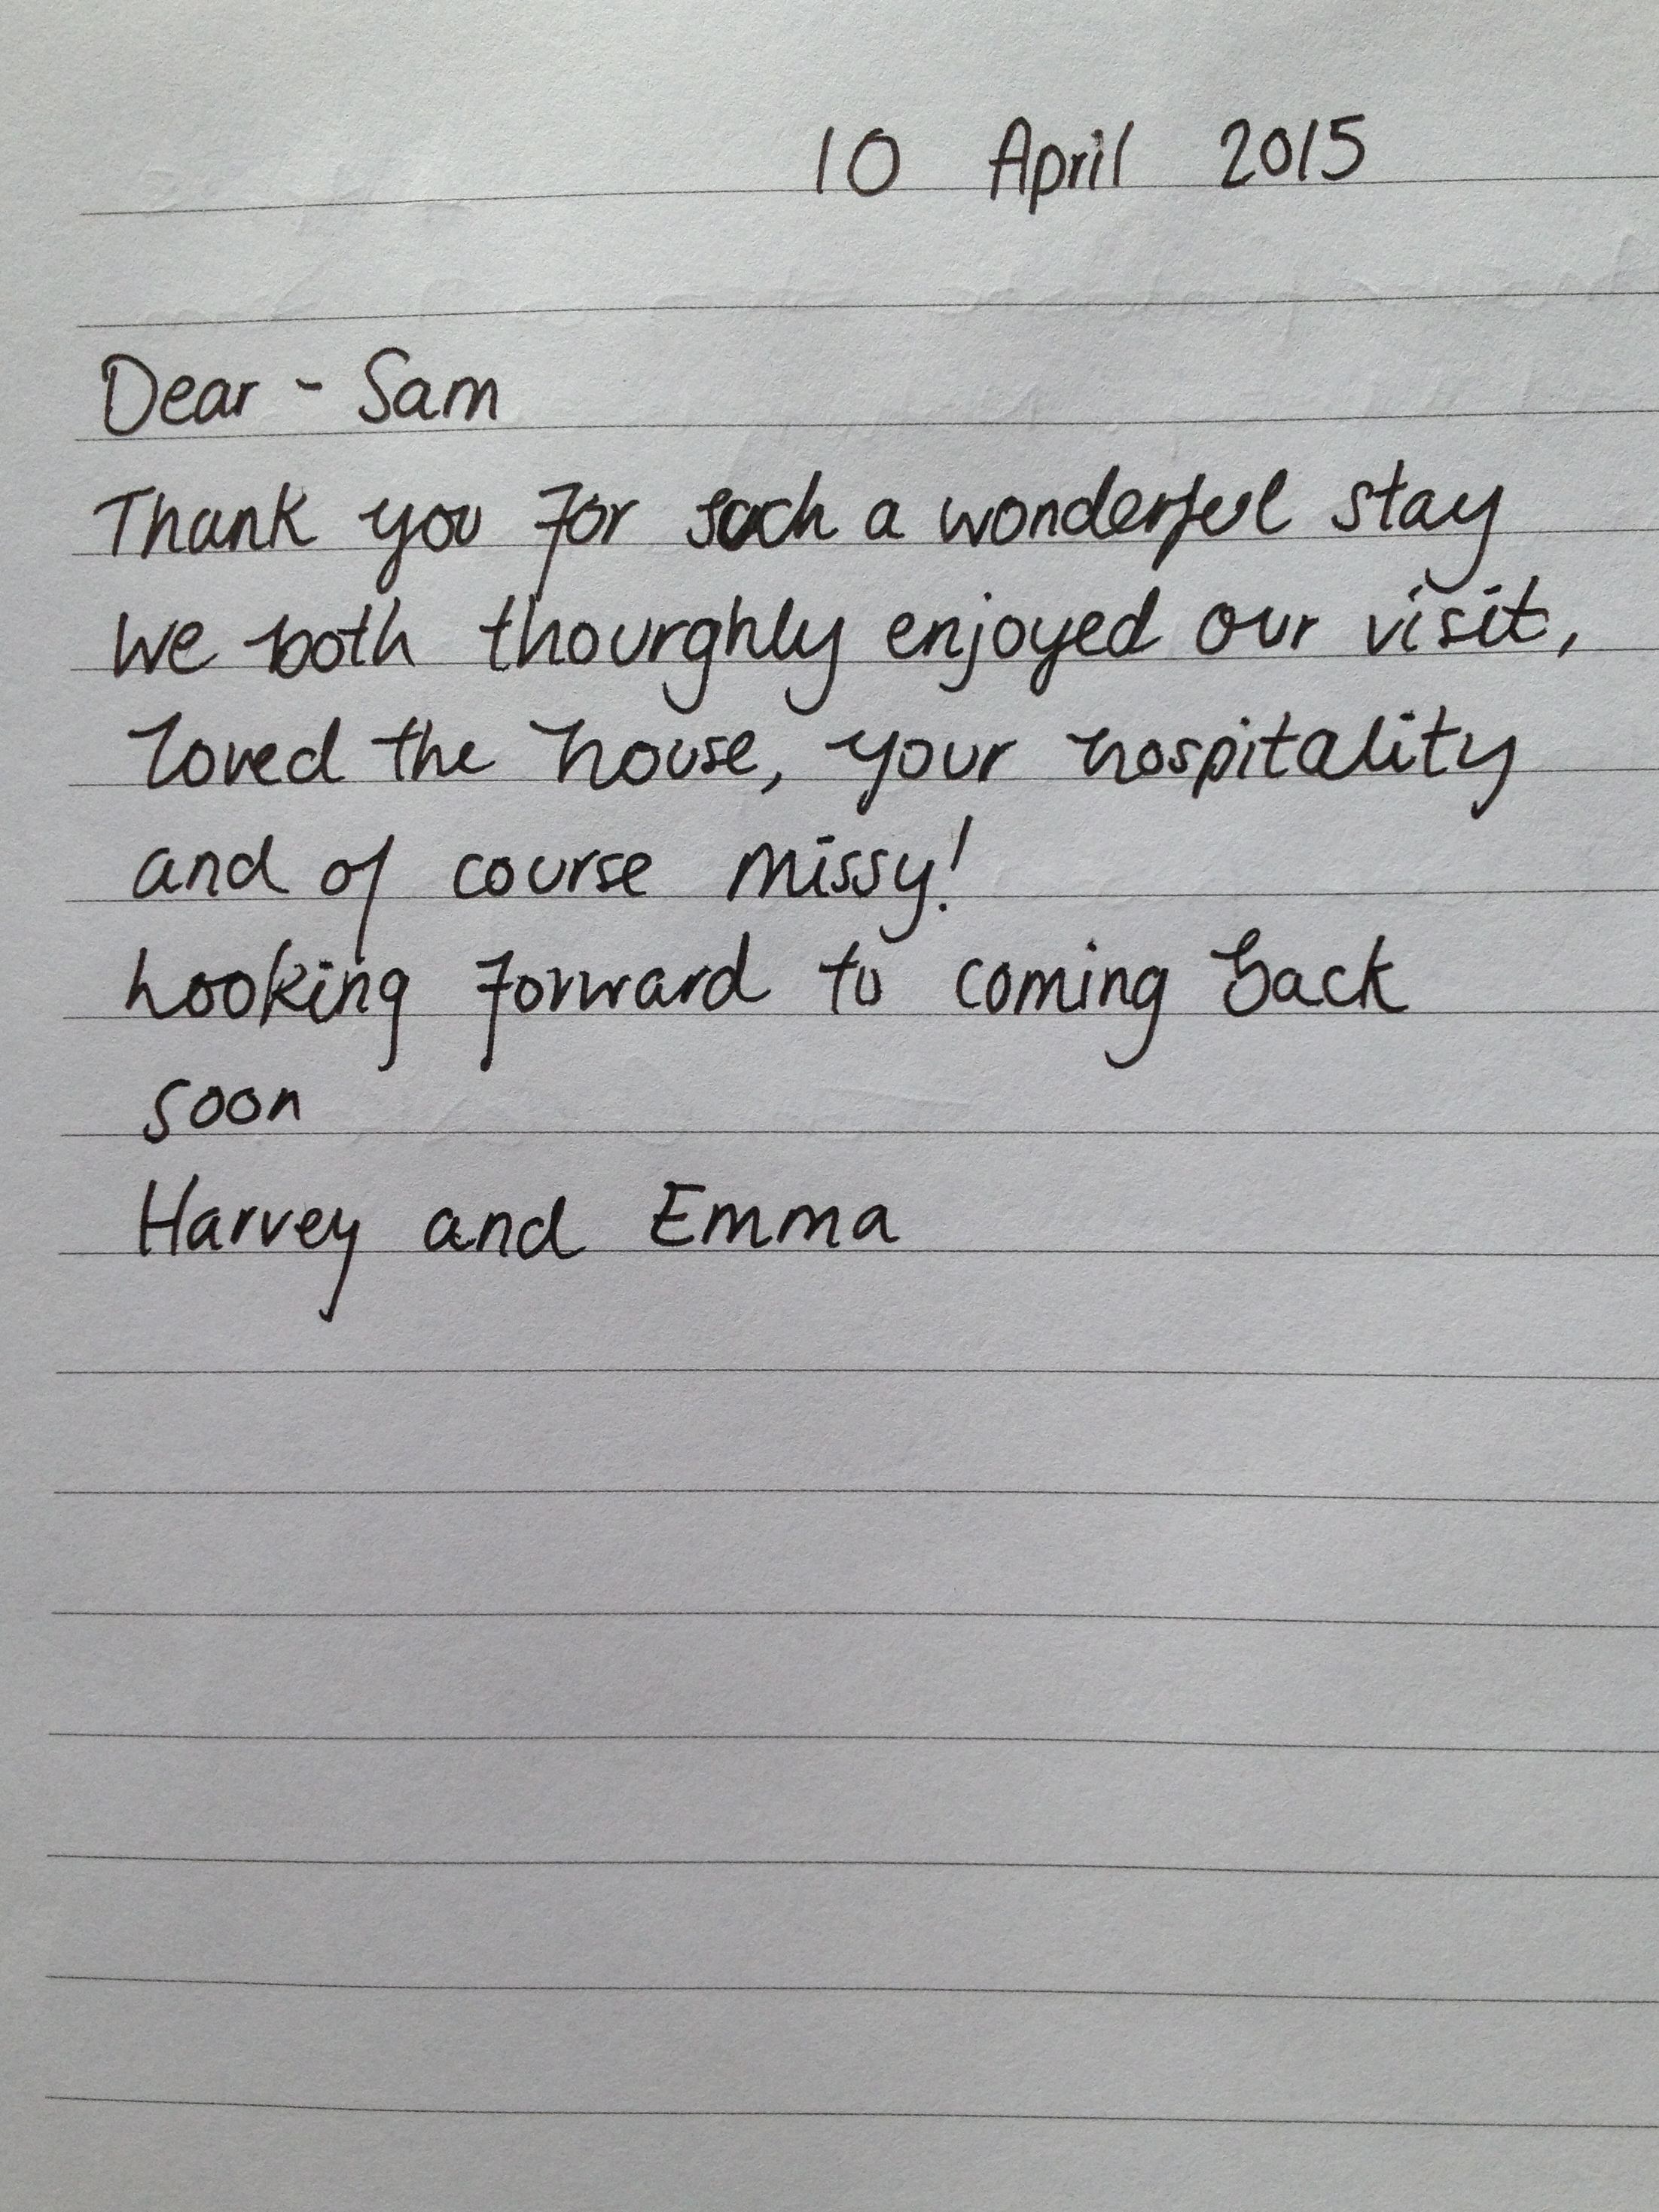 10 April 2015
Dear - Sam
Thank you for such a wonderful stay
We both thourghly enjoyed our visit,
loved the house, your hospitality
and of course missy!
Looking forward to coming back
soon
Harvey and Emma